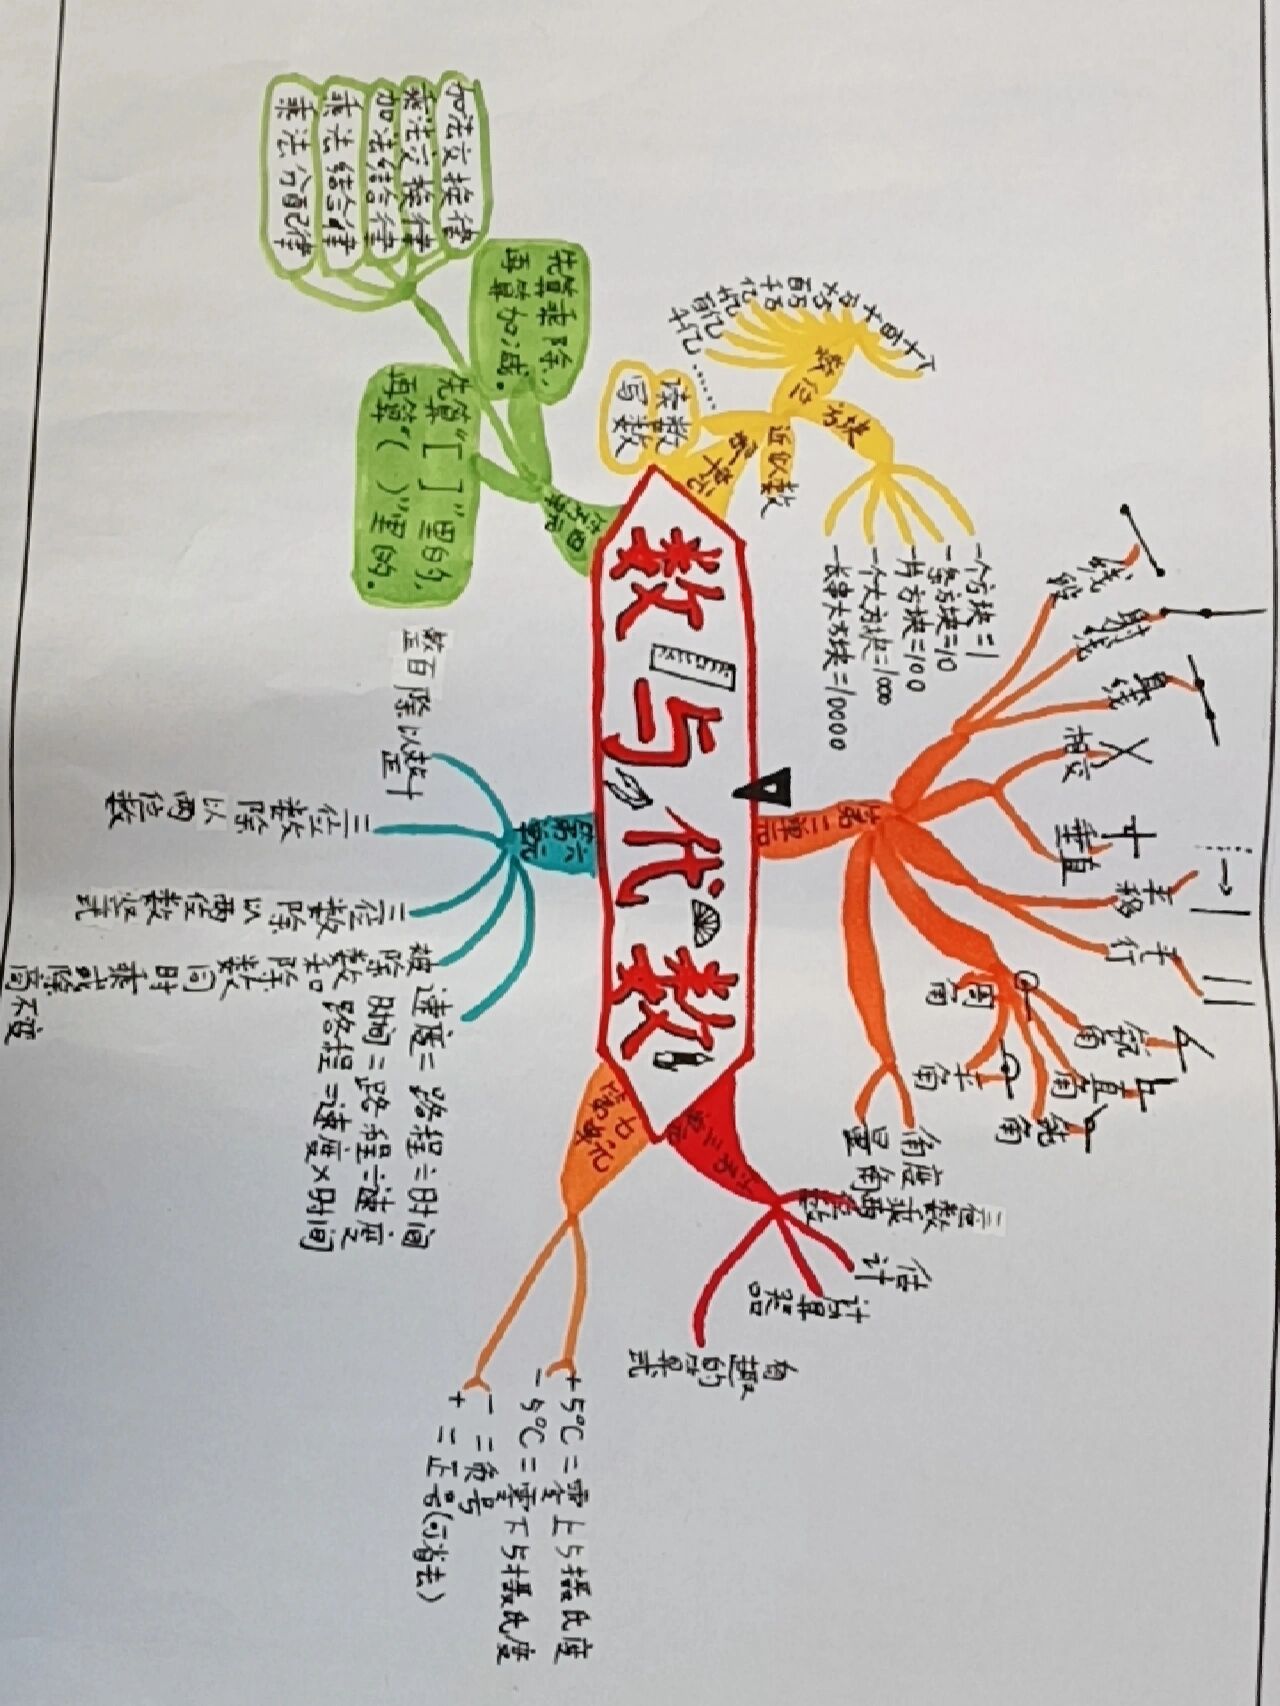 数与代数
第一单元
读数
写数
数位
个
十
百
千
万
十万
百万
千万
亿
十亿
百亿
千亿
……
方块
一个方块=1
一条方块=10
一片方块=100
一个大方块=1000
一长串大方块=10000
近似数
第二单元
线段
射线
直线
相交
垂直
平移
平行
周角
锐角
平角
直角
钝角
角度
量角
第三单元
三位数乘两位数
估计
计算器
有趣的算式
第四单元
先算乘除,
再算加减。
先算“[ ]”里的,
再算“( )”里的。
加法交换律
乘法交换律
加法结合律
乘法结合律
乘法分配律
第六单元
整百除以整十
三位数除以两位数
三位数除以两位数竖式
被除数和除数同时乘或除商不变
速度=路程÷时间
时间=路程÷速度
路程=速度×时间
第七单元
+5℃=零上5摄氏度
-5℃=零下5摄氏度
-=负号
+=正号(可省去)